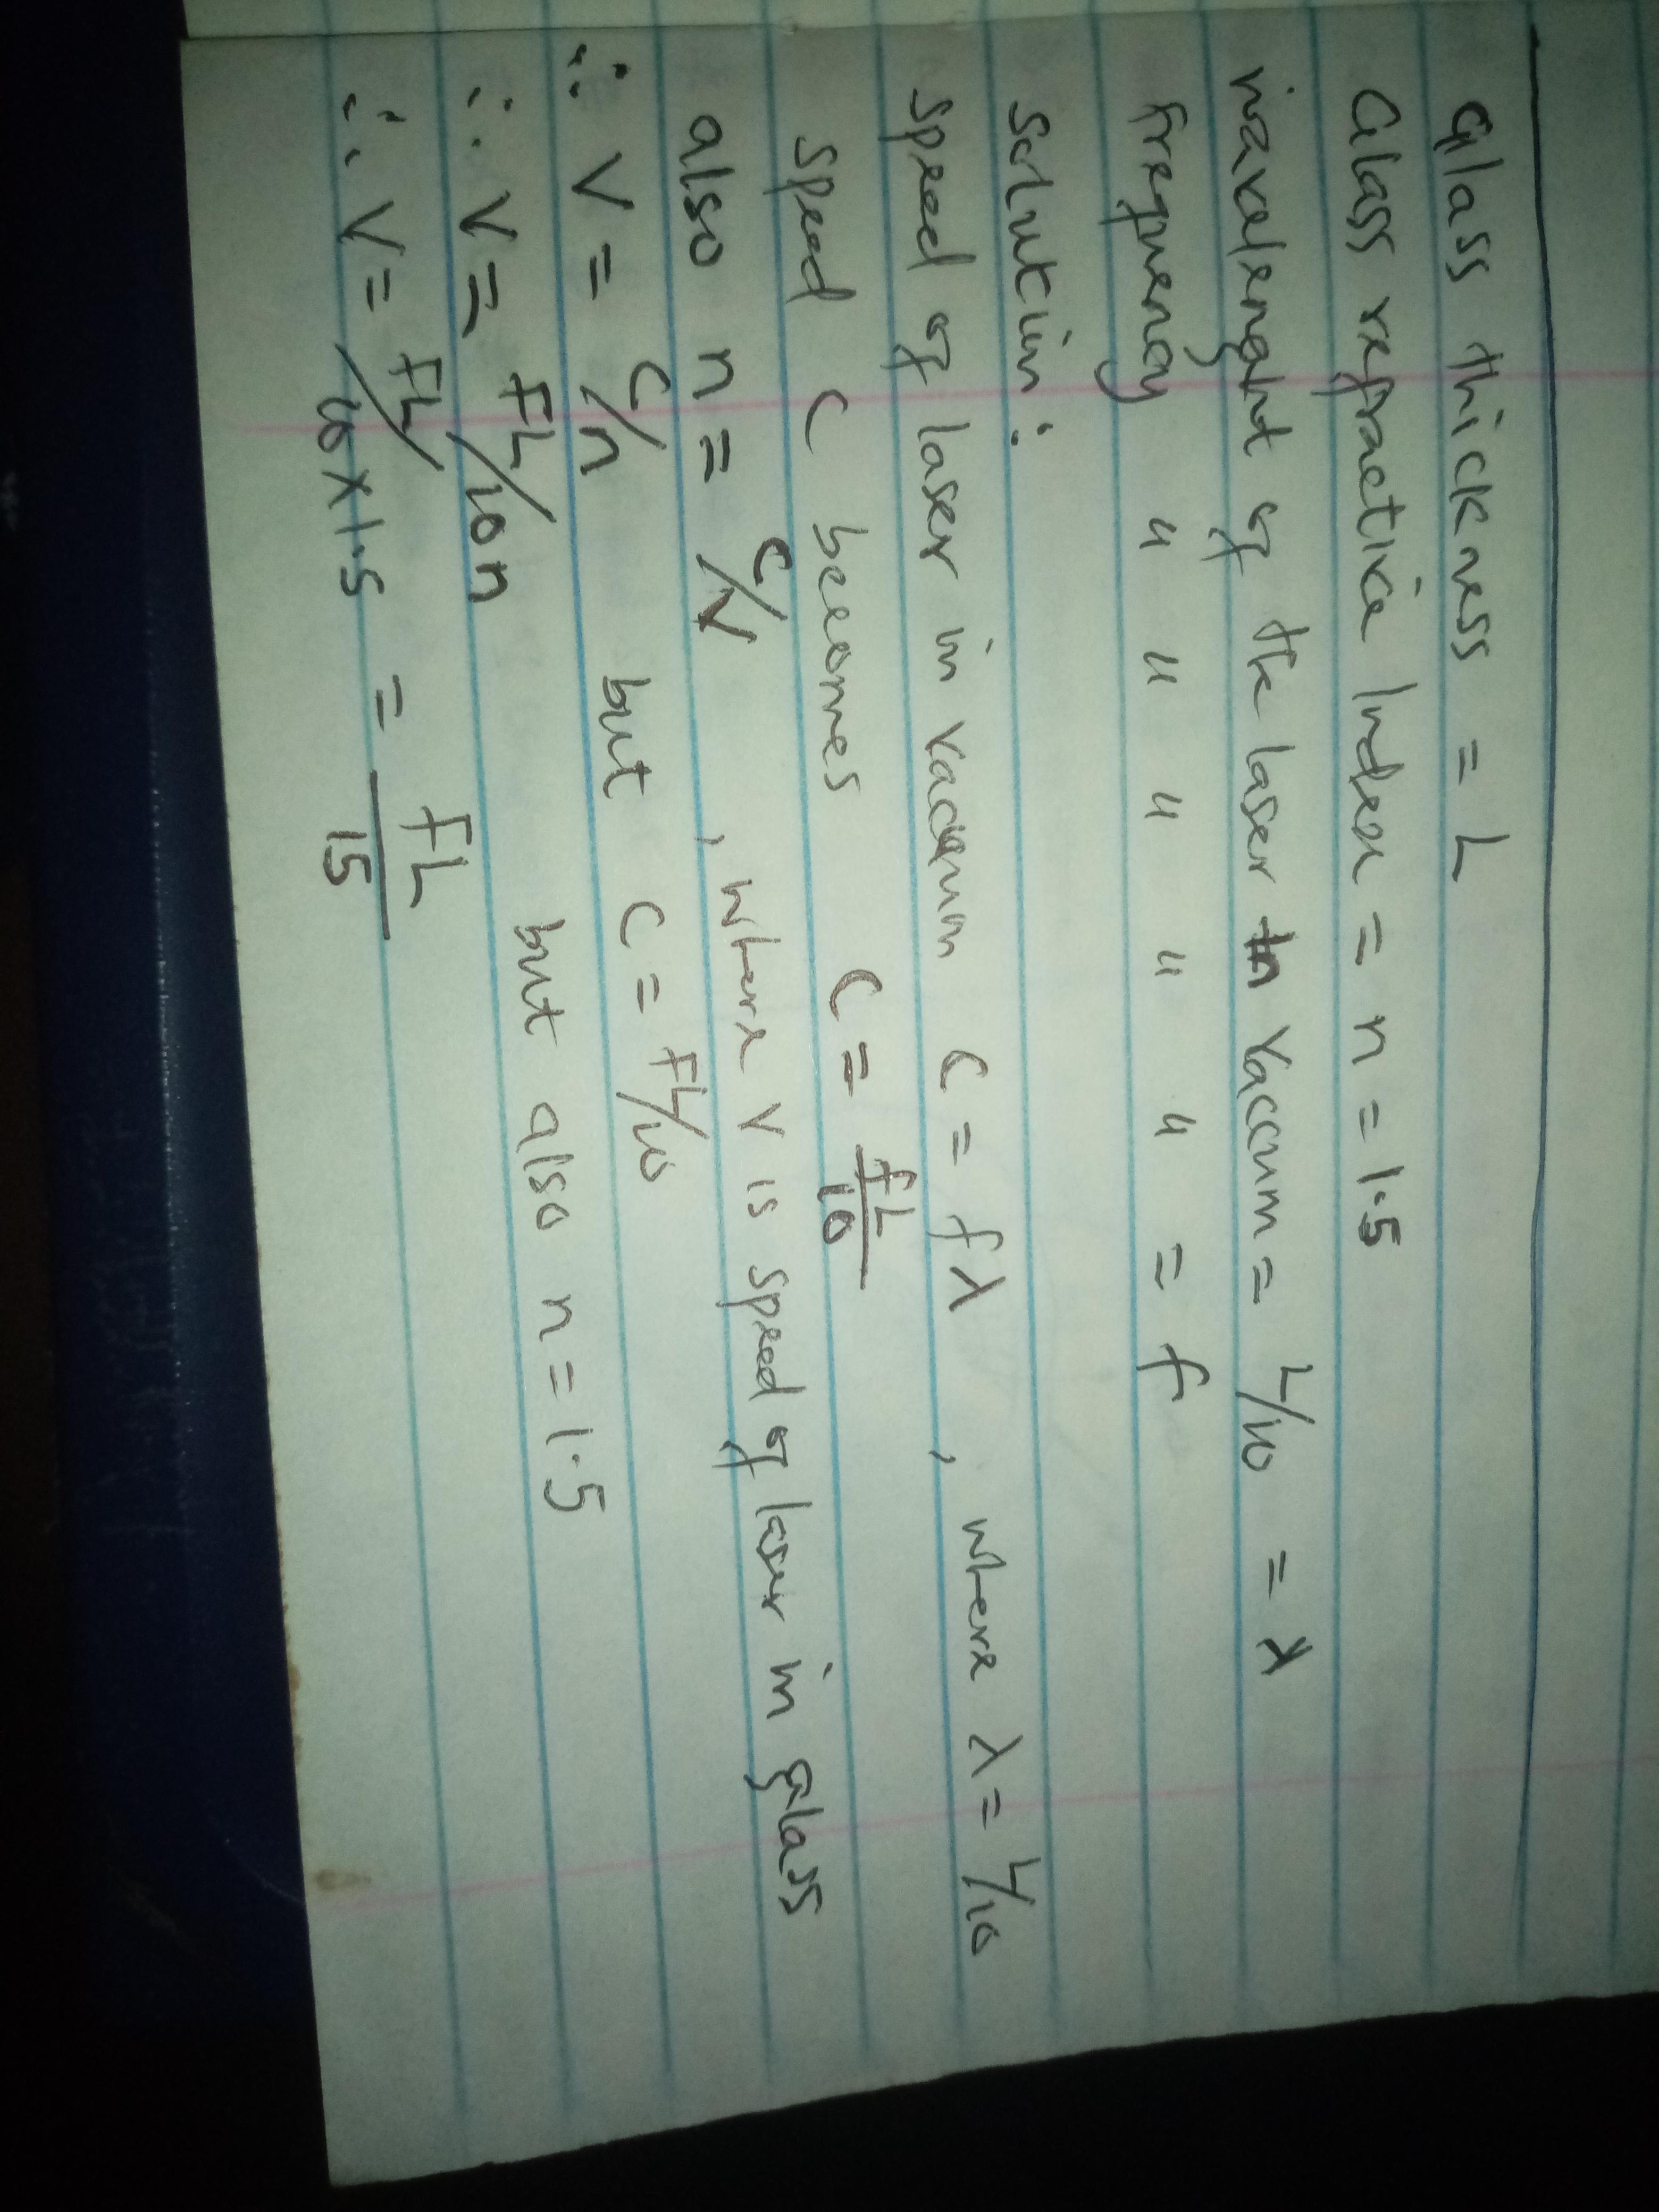 Glass thickness = L
Glass refractive Index = n = 1.5
wavelenght of the laser in vaccum = L/10 = λ
frequency " " " " " = f
solution:
speed of laser in vaccum C = fλ , where λ = L/10
speed C becomes C = fL/10
also n = C/V , where V is speed of laser in glass
∴ V = C/n but C = fL/10
∴ V = fL/10n but also n = 1.5
∴ V = fL/10×1.5 = fL/15